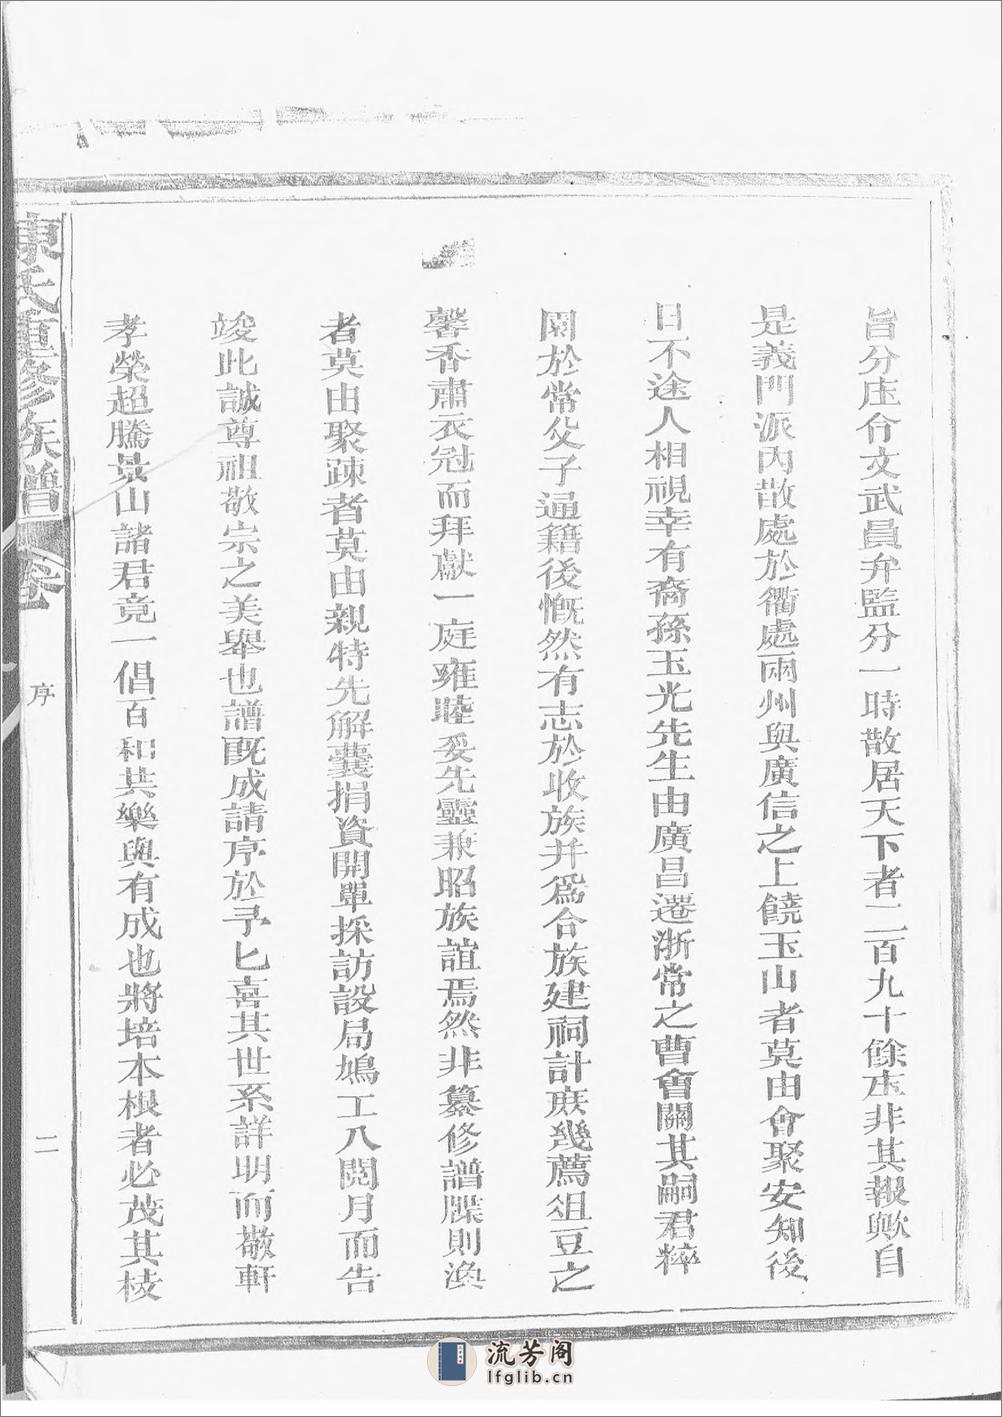 旨分庄合文武員弁監分一時散居天下者二百九十餘庄非其報歟自
是義門派內散處於衢處兩州與廣信之上饒玉山者莫由會聚安知後
日不途人相視幸有裔孫玉光先生由廣昌遷浙常之曹會關其嗣君粹
園於常父子通籍後慨然有志於收族并為合族建祠計庶幾薦俎豆之
馨香肅衣冠而拜獻一庭雍睦妥先靈兼昭族誼焉然非纂修譜牒則渙
者莫由聚疎者莫由親特先解囊捐資開單採訪設局鳩工八閱月而告
竣此誠尊祖敬宗之美舉也譜既成請序於予匕喜其世系詳明而敬軒
孝榮超騰景山諸君竟一倡百和共樂與有成也將培本根者必茂其枝
陳氏重修族譜
卷
序
二
流芳阁
lfglib.cn